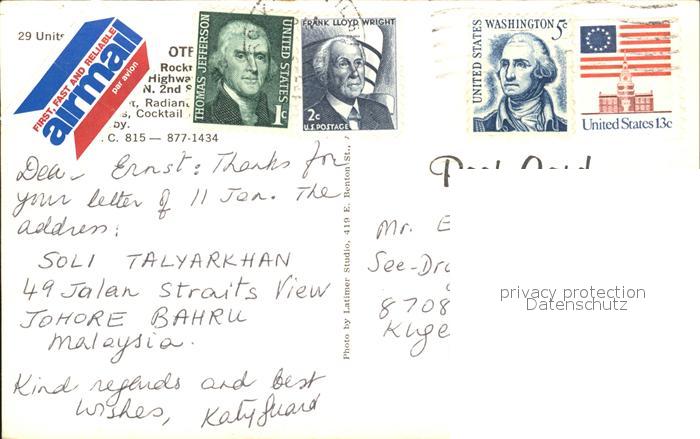 29 Units
FIRST, FAST AND RELIABLE
airmail
par avion
Highwa
N. 2nd S
t, Radian
s, Cocktail
by.
C. 815 — 877-1434
THOMAS JEFFERSON
UNITED STATES
1c
FRANK LLOYD WRIGHT
2c
U.S. POSTAGE
UNITED STATES
WASHINGTON 5c
United States 13c
Dear Ernst: Thanks for
your letter of 11 Jan. The
address:
SOLI TALYARKHAN
49 Jalan Straits View
JOHORE BAHRU
Malaysia.
Kind regards and best
wishes, Katy Guard
Photo by Latimer Studio, 419 E. Benton St.,
Post Card
Mr. E
See-Dr
8708
privacy protection
Datenschutz